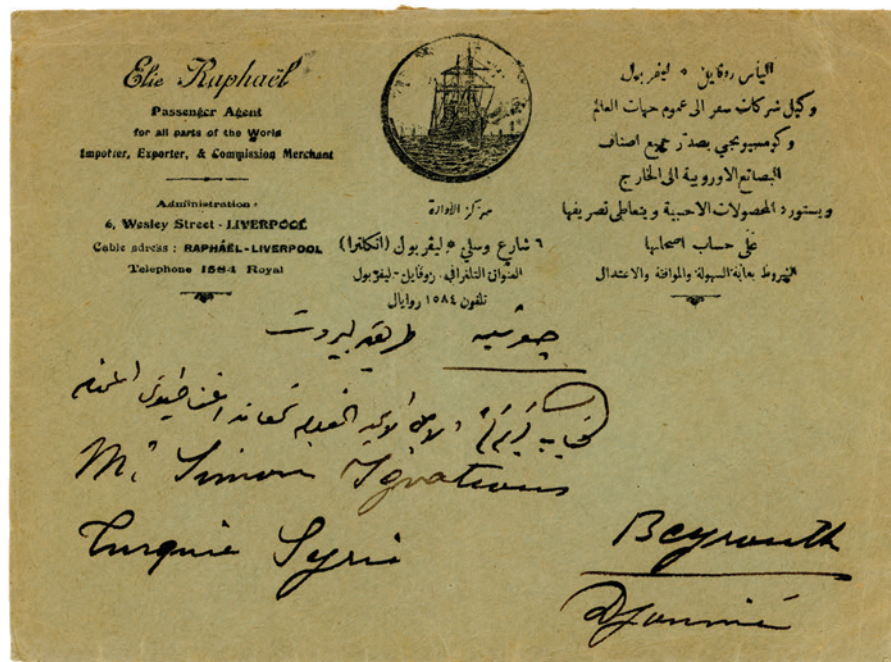 Elie Raphaël
Passenger Agent
for all parts of the World
Importer, Exporter, & Commission Merchant
Administration :
6, Wesley Street - LIVERPOOL
Cable adress : RAPHAËL-LIVERPOOL
Telephone 1584 Royal
مركز الادارة
٦ شارع وسلي * ليفربول (انكلترا)
العنوان التلغرافي. روفايل - ليفربول
تلفون ١٥٨٤ روايال
الياس روفايل * ليفربول
وكيل شركات سفر الى عموم جهات العالم
وكومسيونجي يصدّر جميع اصناف
البضائع الاوروبية الى الخارج
ويستورد المحصولات الاجنبية ويتعاطى تصريفها
على حساب اصحابها
الشروط بغاية السهولة والموافقة والاعتدال
جونيه طريق بيروت
جناب
Mr Simon Ignatious
Turquie Syrie
Beyrouth
Djounié